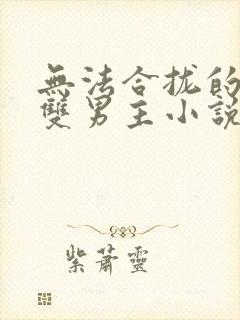 無法合拢的
雙男主小說
紫蕭靈